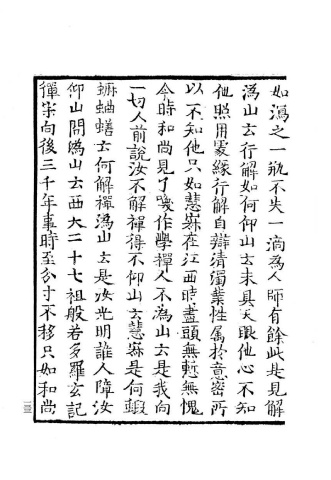 如瀉之一瓶不失一滴為人師有餘此是見解
溈山云行解如何仰山云未具天眼他心不知
他照用處緣行解自辯清濁業性属於意密所
以不知他只如慧寂在江西時盡頭無慙無愧
今時和尚見了喚作學禪人不溈山云是我向
一切人前說汝不解禪得不仰山云慧寂是何蝦
蟖蛐蟮云何解禪溈山云是汝光明誰人障汝
仰山問溈山云西天二十七祖般若多羅玄記
禪宗向後三千年事時至分寸不移只如和尚